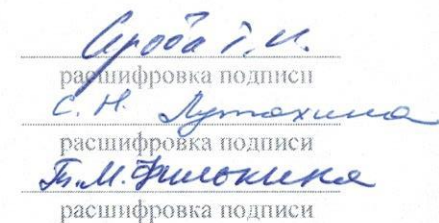 расшифровка подписи
С. Н. Лутохина
расшифровка подписи
Т.М. Филькина
расшифровка подписи